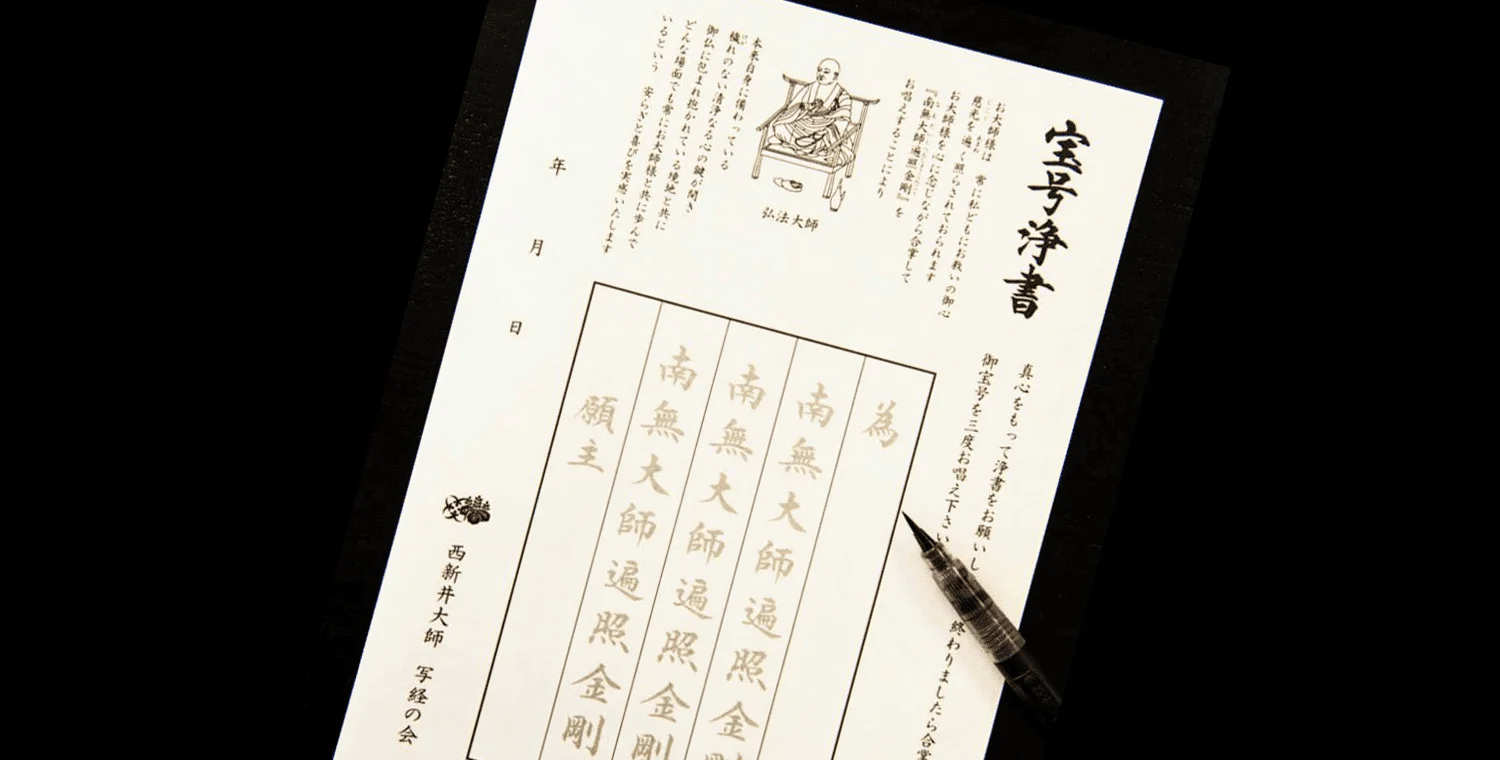 宝号浄書
真心をもって浄書をお願いし
御宝号を三度お唱え下さい
終わりましたら合掌
お大師様は　常に私どもにお救いの御心
慈光を遍く照らされておられます
お大師様を心に念じながら合掌して
『南無大師遍照金剛』を
お唱えすることにより
弘法大師
本来自身に備わっている
穢れのない清浄なる心の鍵が開き
御仏に包まれ抱かれている境地と共に
どんな場面でも常にお大師様と共に歩んで
いるという　安らぎと喜びを実感いたします
為
南無大師遍照金剛
南無大師遍照金剛
南無大師遍照金剛
願主
年　月　日
西新井大師　写経の会